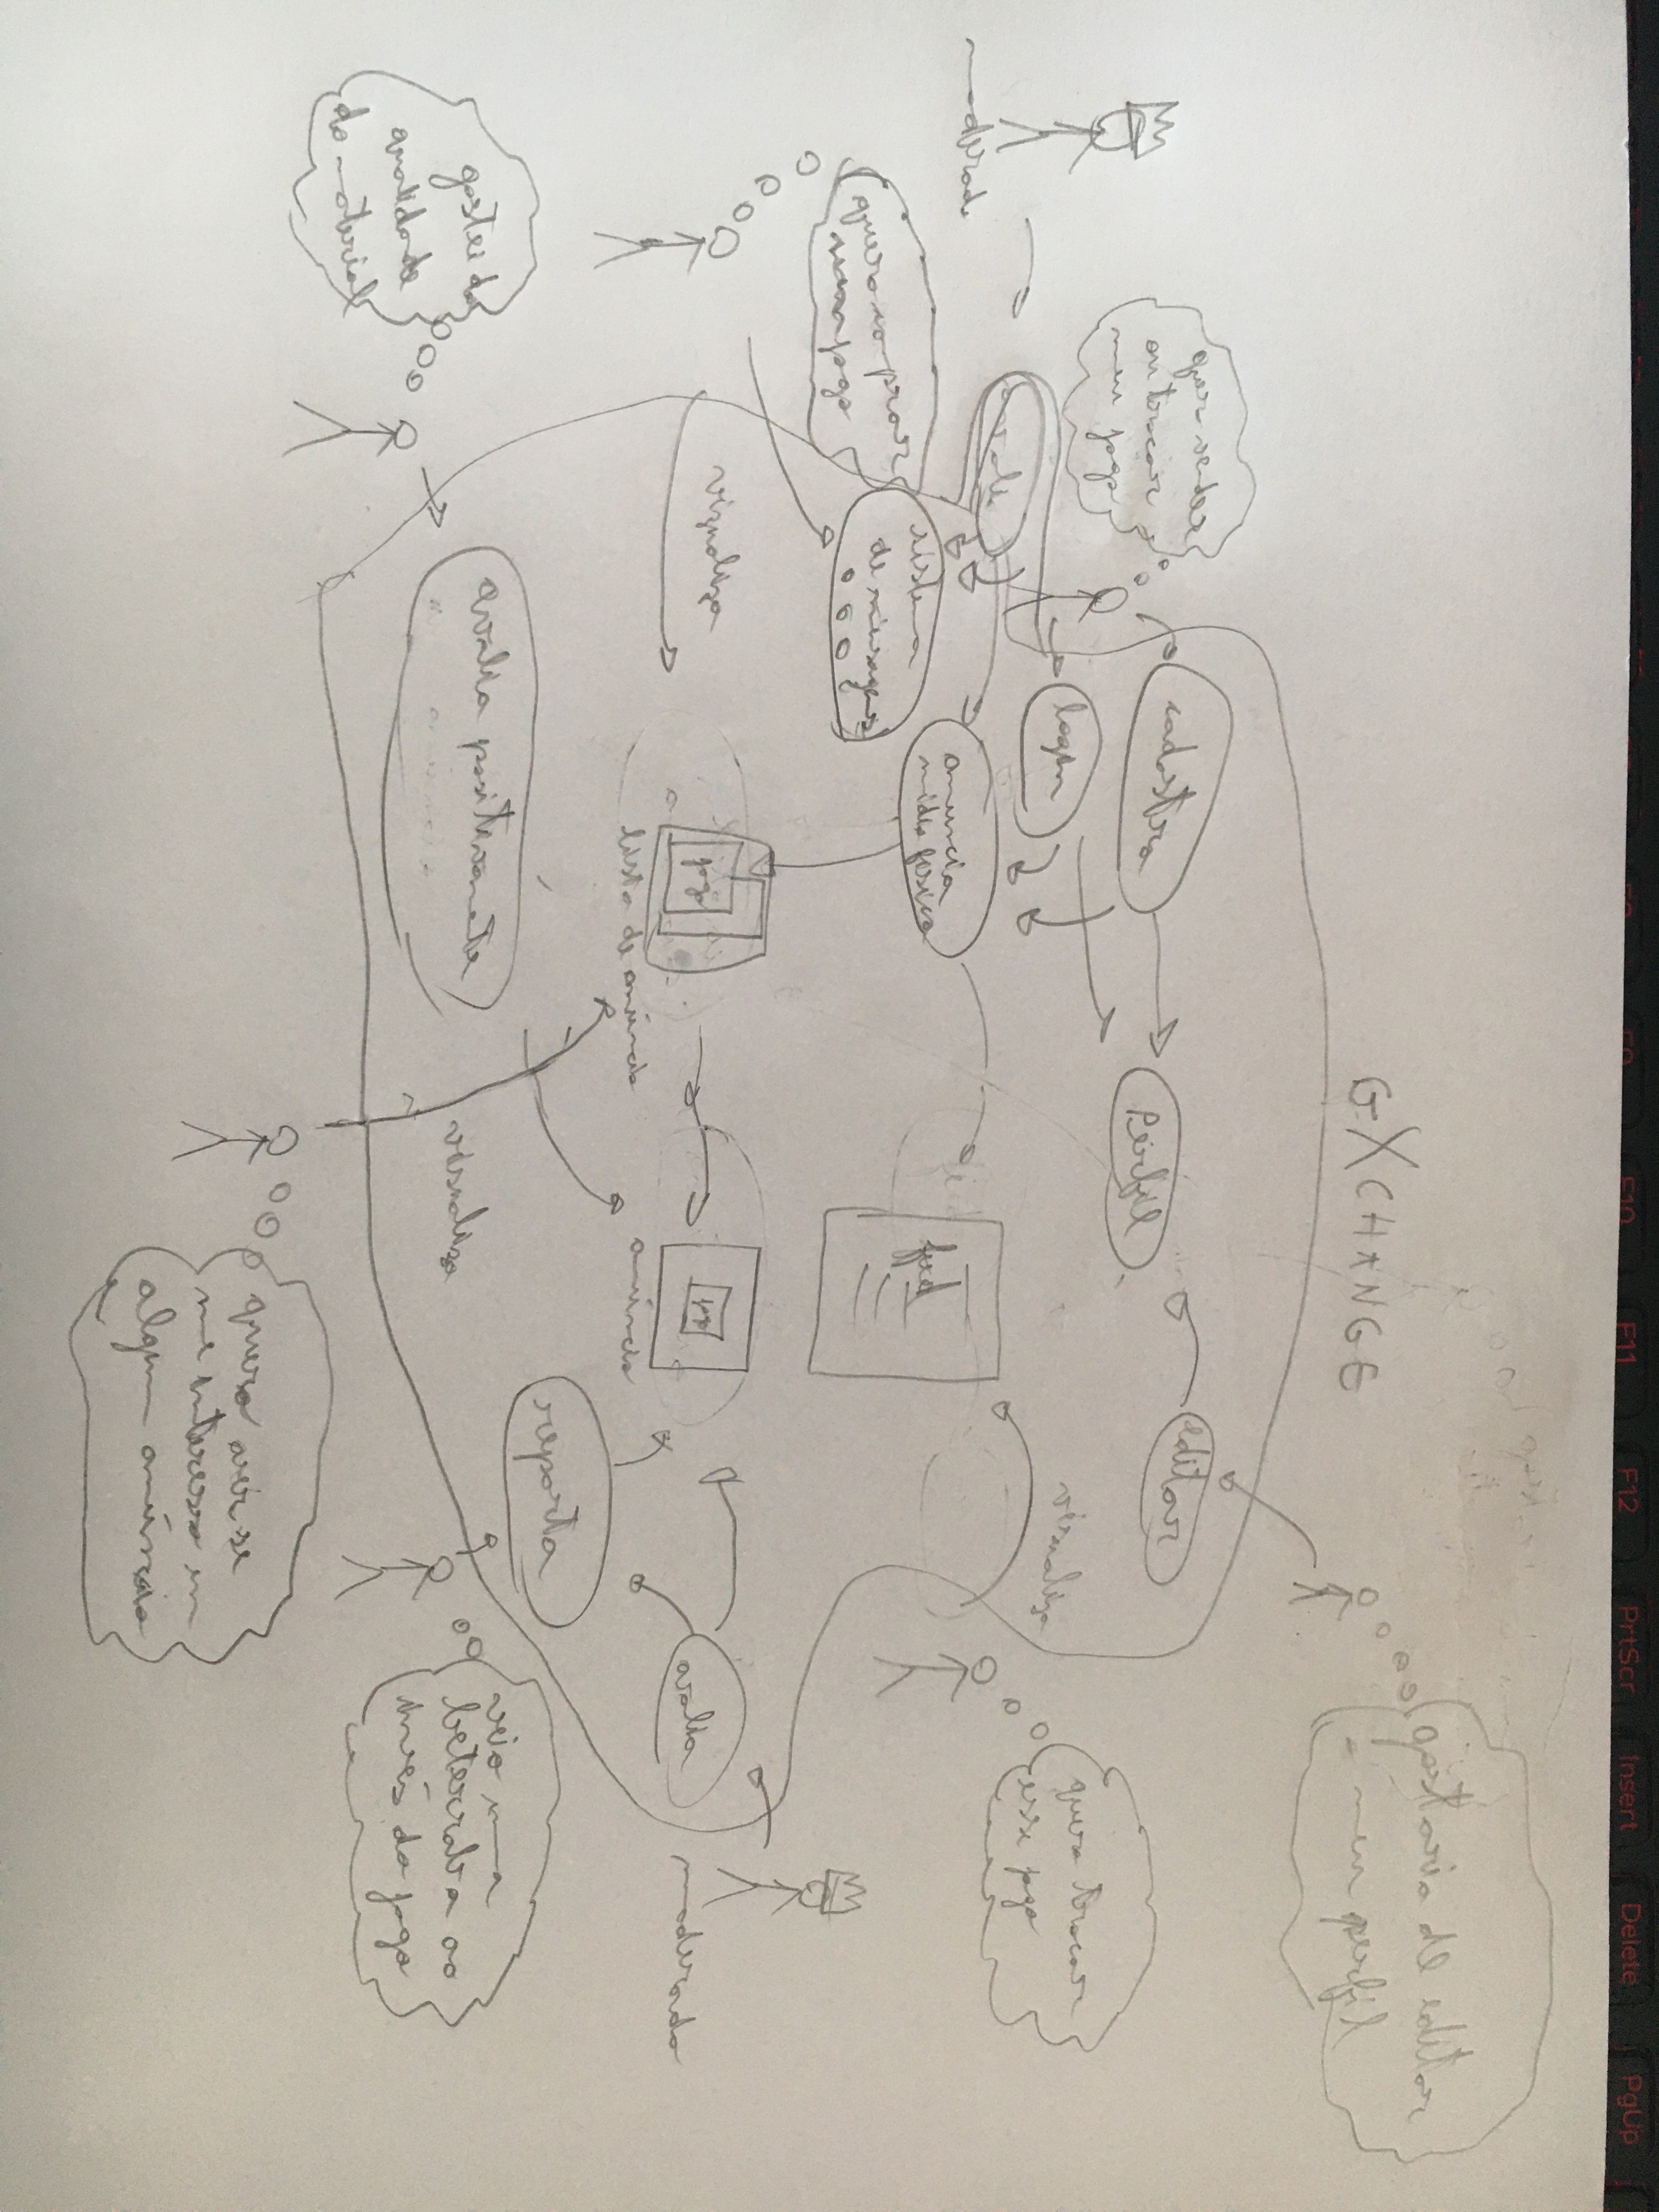 F9
F10
F11
F12
PrtScr
Insert
Delete
PgUp
GXCHANGE
gostaria de editar
meu perfil
quer vender
ou trocar
meu jogo
cadastra
Perfil
editar
login
visualiza
quero trocar
esse jogo
moderad
avalia
anuncia
mídia física
feed
sistema
de mensagens
quero comprar
jogo
vizualiza
jogo
lista de anúncio
jogo
anúncio
avalia
moderado
reporta
avalia positivamete
visualiza
gostei da
qualidade
do material
veio uma
beterraba ao
invés do jogo
quero ver se
me interessa em
algum anúncio